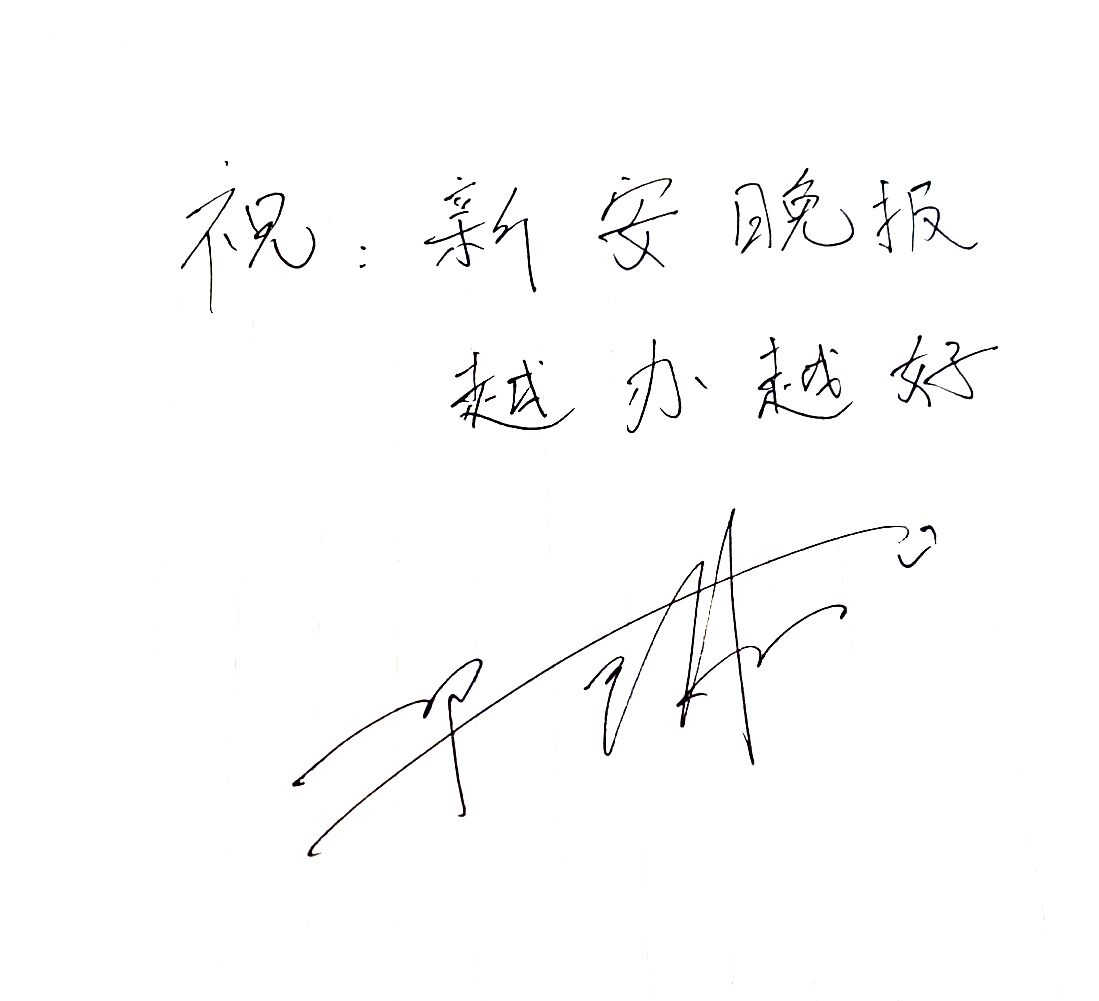 祝：新安晚报
越办越好